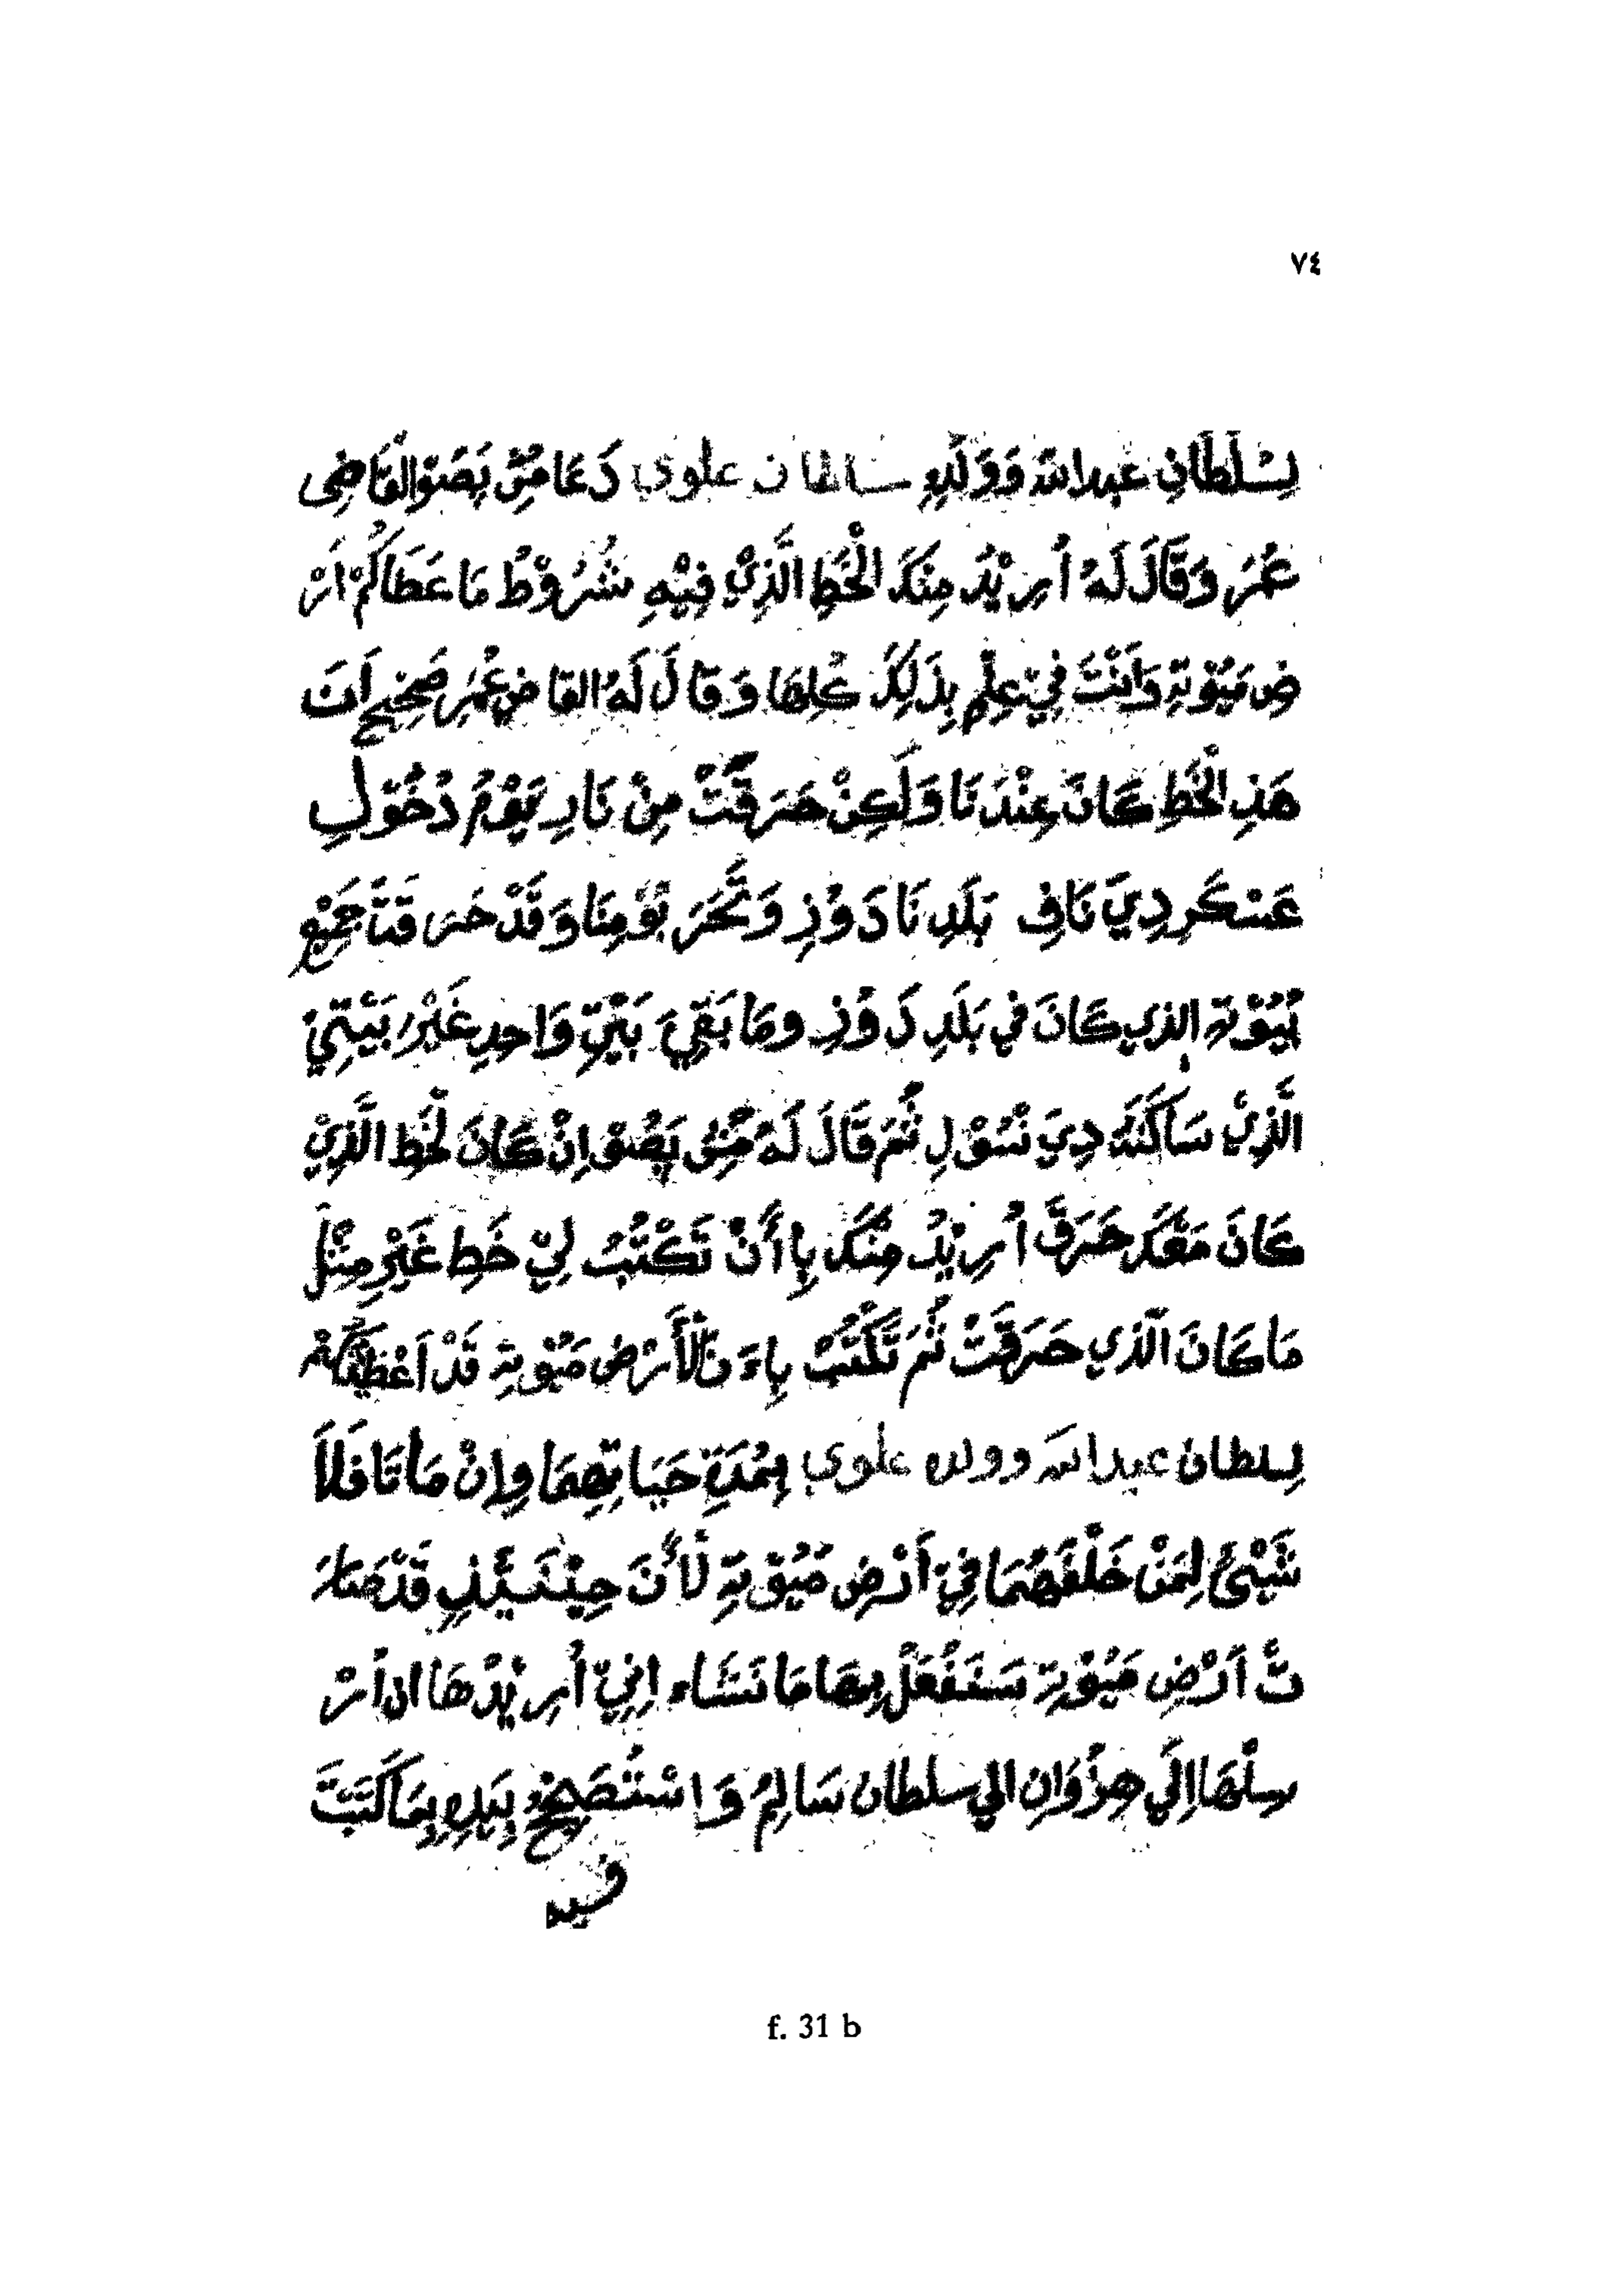 ٧٤
لِسُلْطَانِ عبدالله وَوَلَدِهِ سلطان علوي دَعَا مِسْ بَصَوْ القَاضِى
عُمَرَ وَقَالَ لَهُ أُرِيْدُ مِنْكَ الْخَطِ الَّذِيْ فِيْهِ شُرُوْطُ مَا عَطَاكُمْ اَرْ
ضِ مَيُوْتِةِ وَاَنْتَ فِيْ عِلْمٍ بِذَلِكَ كُلِهَا وَقَالَ لَهُ القاضِ عُمَرِ صَحِيْح اَنَ
هَذِ الْخَطِ كَانَ عِنْدَنَا وَلَكِنْ حَرَقَتْ مِنْ نَارِ يَوْمُ دُخُوْلِ
عَسْكَرِ دِيَ نَافِ بَلَدِنَا دَوُذِ وَتَّحَرَبُوْ مِنَا وَقَدْ حَرَقَتَ جَمِيْعِ
بُيُوْتِ الذي كَانَ في بَلَدِ دَوُذِ وَمَا بَقِيَ بَيْتِ وَاحِدِ غَيْرُ بَيْتِيْ
الَّذِيْ سَاكَنَهُ دِيَ نْسُوْلِ ثُمَ قَالَ لَهُ مِسْ بَصُوْ اِنْ كَانَ لْخَطِ الَّذِيْ
كَانَ مَعْكَ حَرَقَ أُرِيْدُ مِنْكَ بِاأَنْ تَكْتُبُ لِيْ خَطِ غَيْرِ مِثْلَ
مَا كَانَ الَّذي حَرَقَتْ ثُمَ تَكْتُبُ بِاءَنَ الْأَرْض مَيُوْتِة قَدْ اَعْطَيْنَاكُمْ
لسلطان عبدالله وولده علوي بِمُدَةِ حَيَاتِهِمَا وِاِنْ مَاتَا فَلَا
شَيْئُ لِمَنْ خَلْفَهُمَا فِيْ اَرْضِ مَيُوْتِةِ لْأَنَ حِيْنَئِذِ قَدْ صَارَ
تْ اَرْضِ مَيُوْتِة سَنَفْعَلُ بِهَا مَا نَشَاء اِنِيْ أُرِيْدُهَا ان اُرْ
سِلْهَا اِلَي هِزُوَانِ الي سلطان سَالِمُ وَاسْتُصَحِحْ بِيَدِهِ بِمَا كَتَبَتَ
فيه
f. 31 b